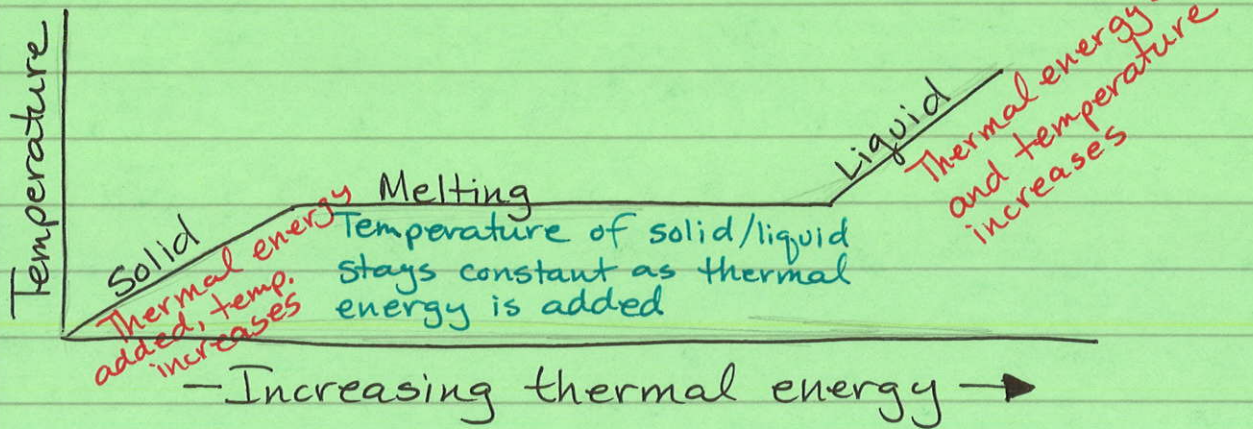 Temperature
Solid
Thermal energy
added, temp.
increases
Melting
Temperature of solid/liquid
stays constant as thermal
energy is added
Liquid
Thermal energy
and temperature
increases
Increasing thermal energy